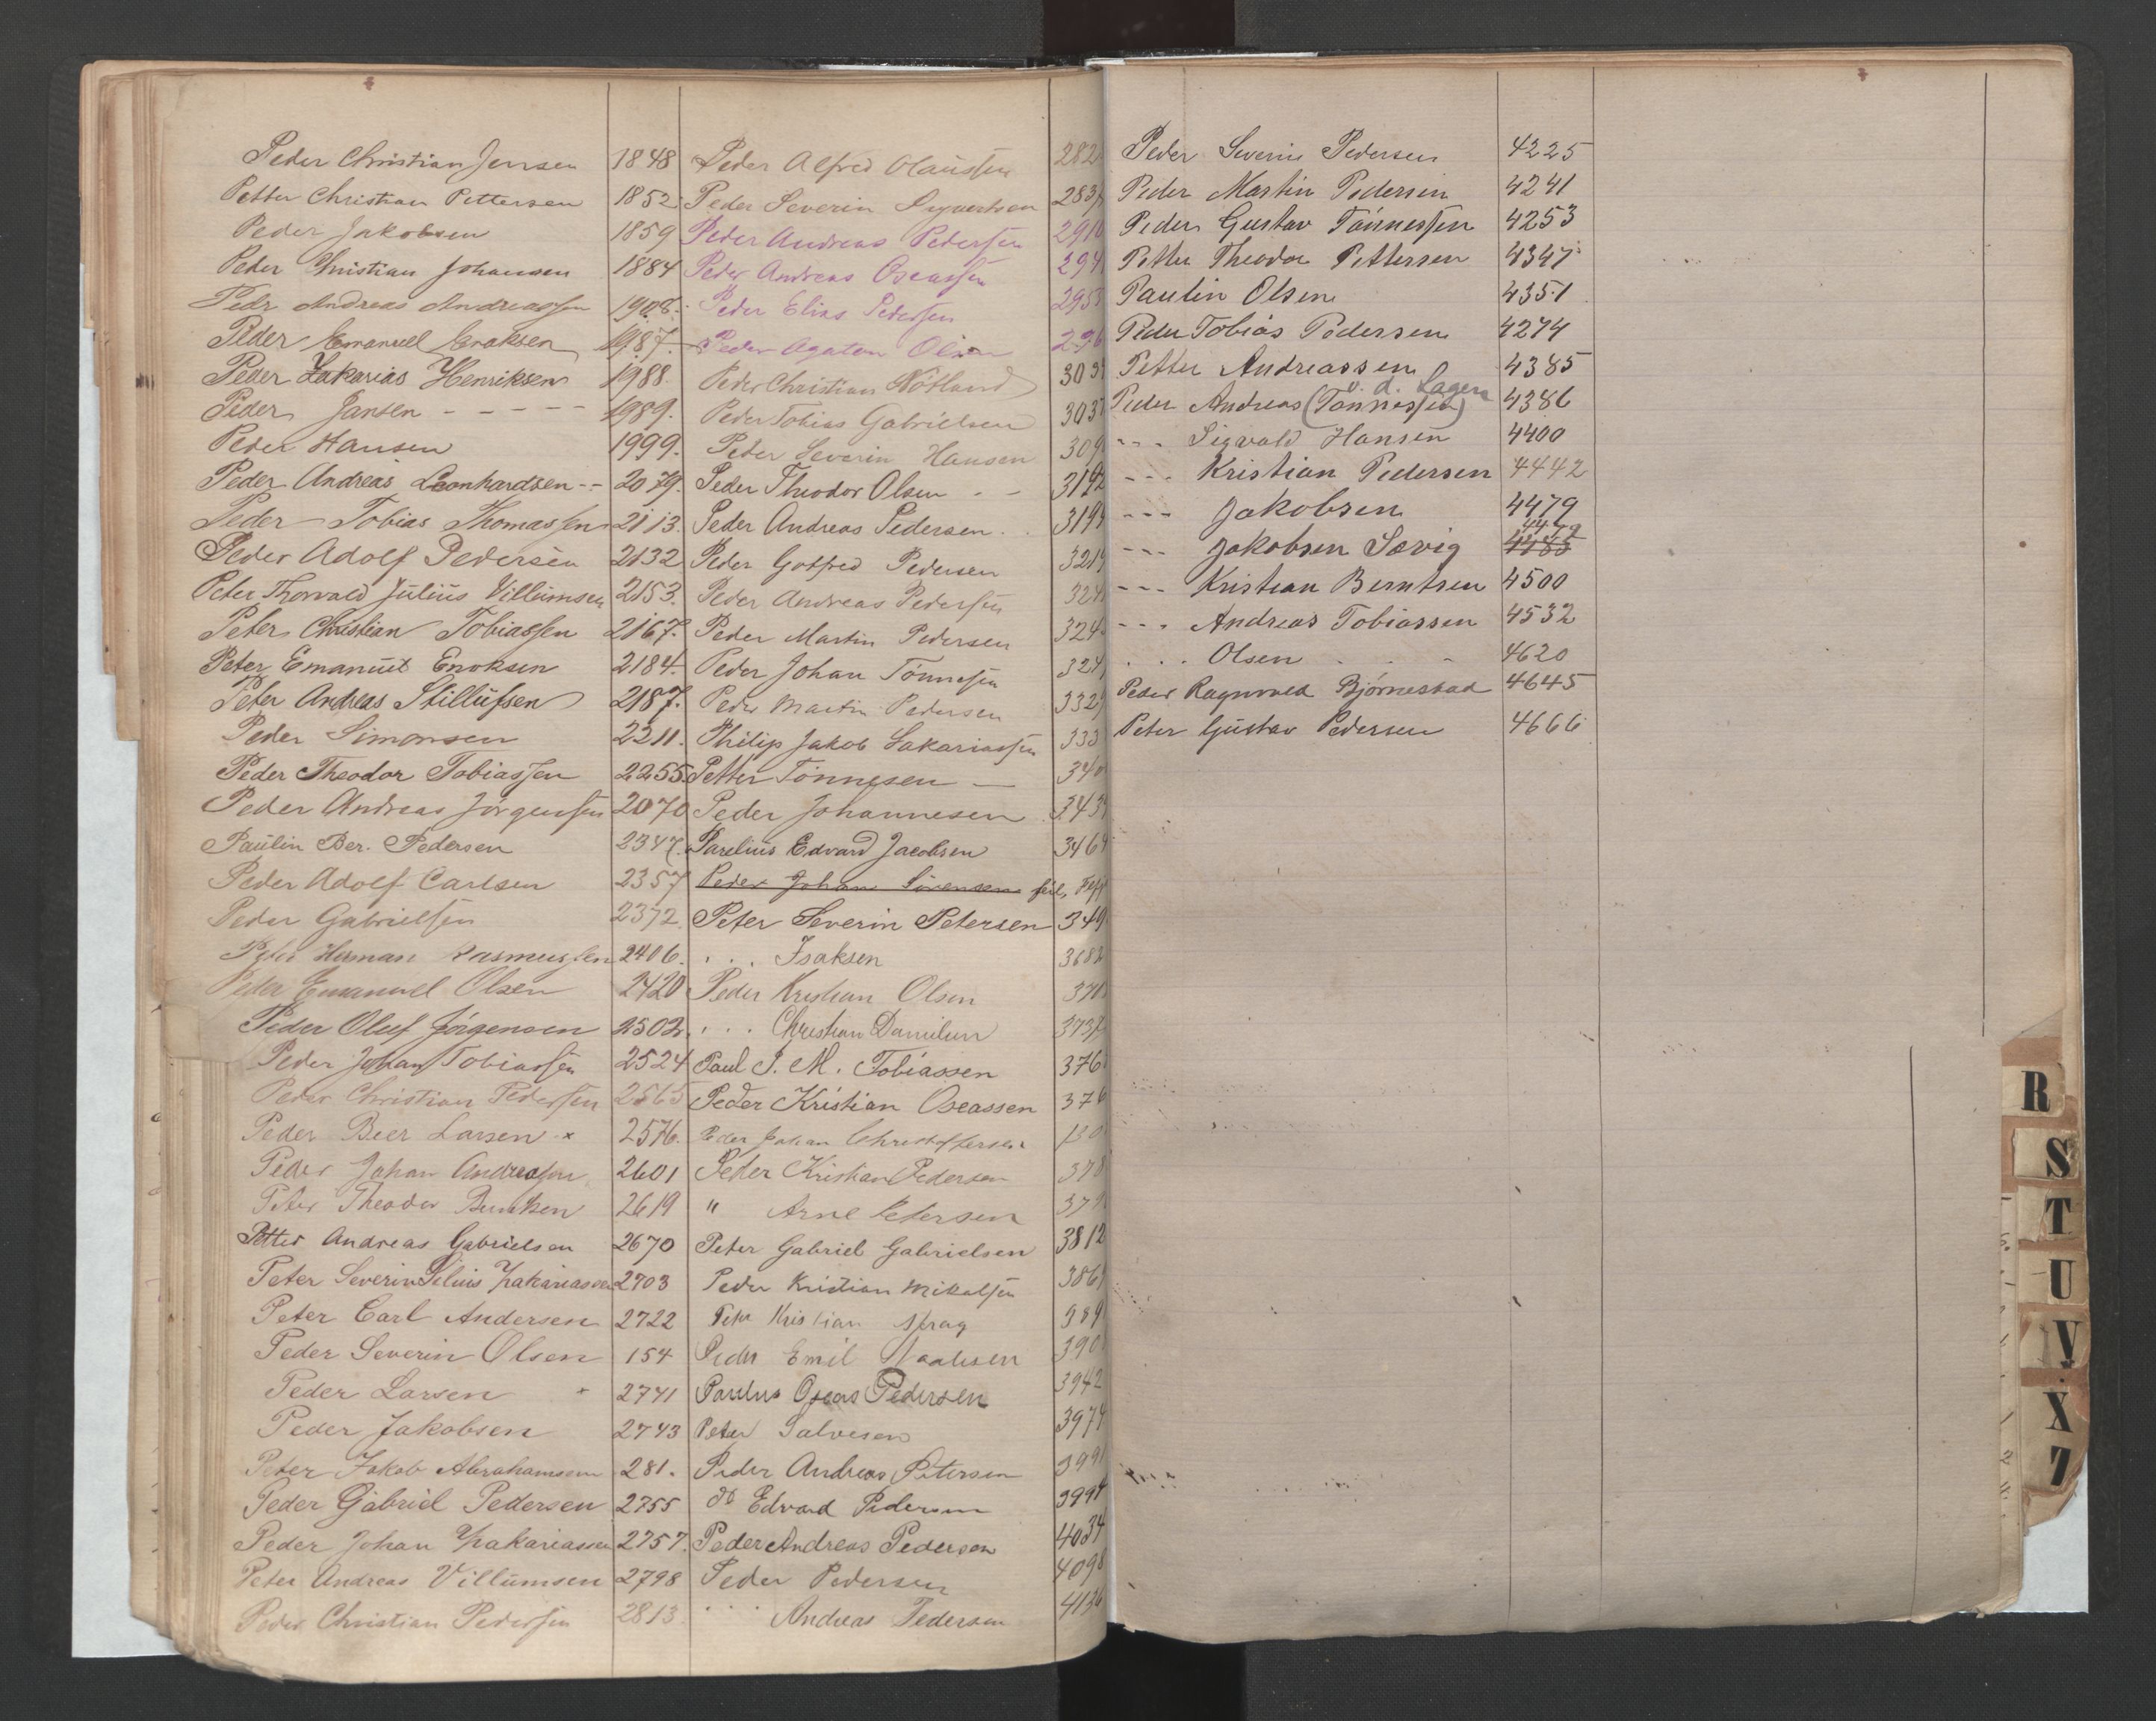 Peder Christian Jensen 1848
Petter Christian Pettersen 1852
Peder Jakobsen 1859
Peder Christian Johansen 1884
Peder Andreas Andreassen 1908.
Peder Emanuel Enoksen 1987.
Peder Zakarias Henriksen 1988.
Peder Jansen - - - - - 1989.
Peder Hansen 1999.
Peder Andreas Leonhardsen -- 2079.
Peder Tobias Thomassen 2113.
Peder Adolf Pedersen 2132
Peter Thorvald Julius Villumsen 2153.
Peter Christian Tobiassen 2167.
Peter Emanuel Enoksen 2184.
Peter Andreas Stillufsen 2187.
Peder Simonsen 2211.
Peder Theodor Tobiassen 2255
Peder Andreas Jörgensen 2070
Paulin Ber. Pedersen 2347.
Peder Adolf Carlsen 2357
Peder Gabrielsen 2372
Peter Herman Rasmussen 2406.
Peder Emanuel Olsen 2420
Peder Oluf Jörgensen 2502.
Peder Johan Tobiassen 2524
Peder Christian Pedersen 2565
Peder Beer Larsen x 2576.
Peder Johan Andreasen 2601
Peter Theodor Berntsen 2619
Petter Andreas Gabrielsen 2670
Peter Severin Silius Zakariassen 2703
Peter Carl Andersen 2722
Peder Severin Olsen 154
Peder Larsen x 2741
Peder Jakobsen 2743
Peter Jakob Abrahamsen 281.
Peder Gabriel Pedersen 2755
Peder Johan Zakariassen 2757.
Peter Andreas Villumsen 2798
Peder Christian Pedersen 2813
Peder Alfred Olaussen 282
Peder Severin Syvertsen 283
Peder Andreas Pedersen 291
Peder Andreas Oseassen 294
Peder Elias Pedersen 295
Peder Agaton Olsen 296
Peder Christian Nötland 303
Peder Tobias Gabrielsen 303
Peder Severin Hansen 309
Peder Theodor Olsen - - 3192
Peder Andreas Pedersen . . 319
Peder Gotfred Pedersen 321
Peder Andreas Pedersen 324
Peder Martin Pedersen 324
Peder Johan Tönnesen 324
Peder Martin Pedersen 332
Philip Jakob Sakariassen 333
Petter Tönnesen — 340
Peder Johannesen 343
Parelius Edvard Jacobsen 346
Peder Johan Sörensen feil,
Peter Severin Petersen 349
. . . Isaksen 3682
Peder Kristian Olsen 371
. . . Christian Danielsen 373
Paul J. M. Tobiassen 376
Peder Kristian Oseassen 376
Peder Johan Christoffersen
Peder Kristian Pedersen 378
" Arne Petersen 379
Peter Gabriel Gabrielsen 3812
Peder Kristian Mikalsen 386
Peter Kristian 389
Peder Emil Isaksen 390
Paulus Oseas Pedersen 3942
Peter Salvesen 3974
Peder Andreas Petersen 399
do Edvard Pedersen 3994
Peder Andreas Pedersen 4034
Peder Pedersen 4098
. . . Andreas Pedersen 4136
Peder Severin Pedersen 4225
Peder Martin Pedersen 4241
Peder Gustav Tönnessen 4253
Petter Theodor Pettersen 4347
Paulin Olsen 4351
Peder Tobias Pedersen 4274
Petter Andreassen 4385
v. d. Lagen
Peder Andreas (Tönnessen) 4386
- - - Sigvald Hansen 4400
- - - Kristian Pedersen 4442
- - - Jakobsen 4479
- - - Jakobsen Sævig 4485
- - - Kristian Berntsen 4500
- - - Andreas Tobiassen 4532
. . . Olsen . . - 4620
Peder Ragnvald Björnestad 4645
Peter Gustav Pedersen 4666
R
S
T
U
V
X